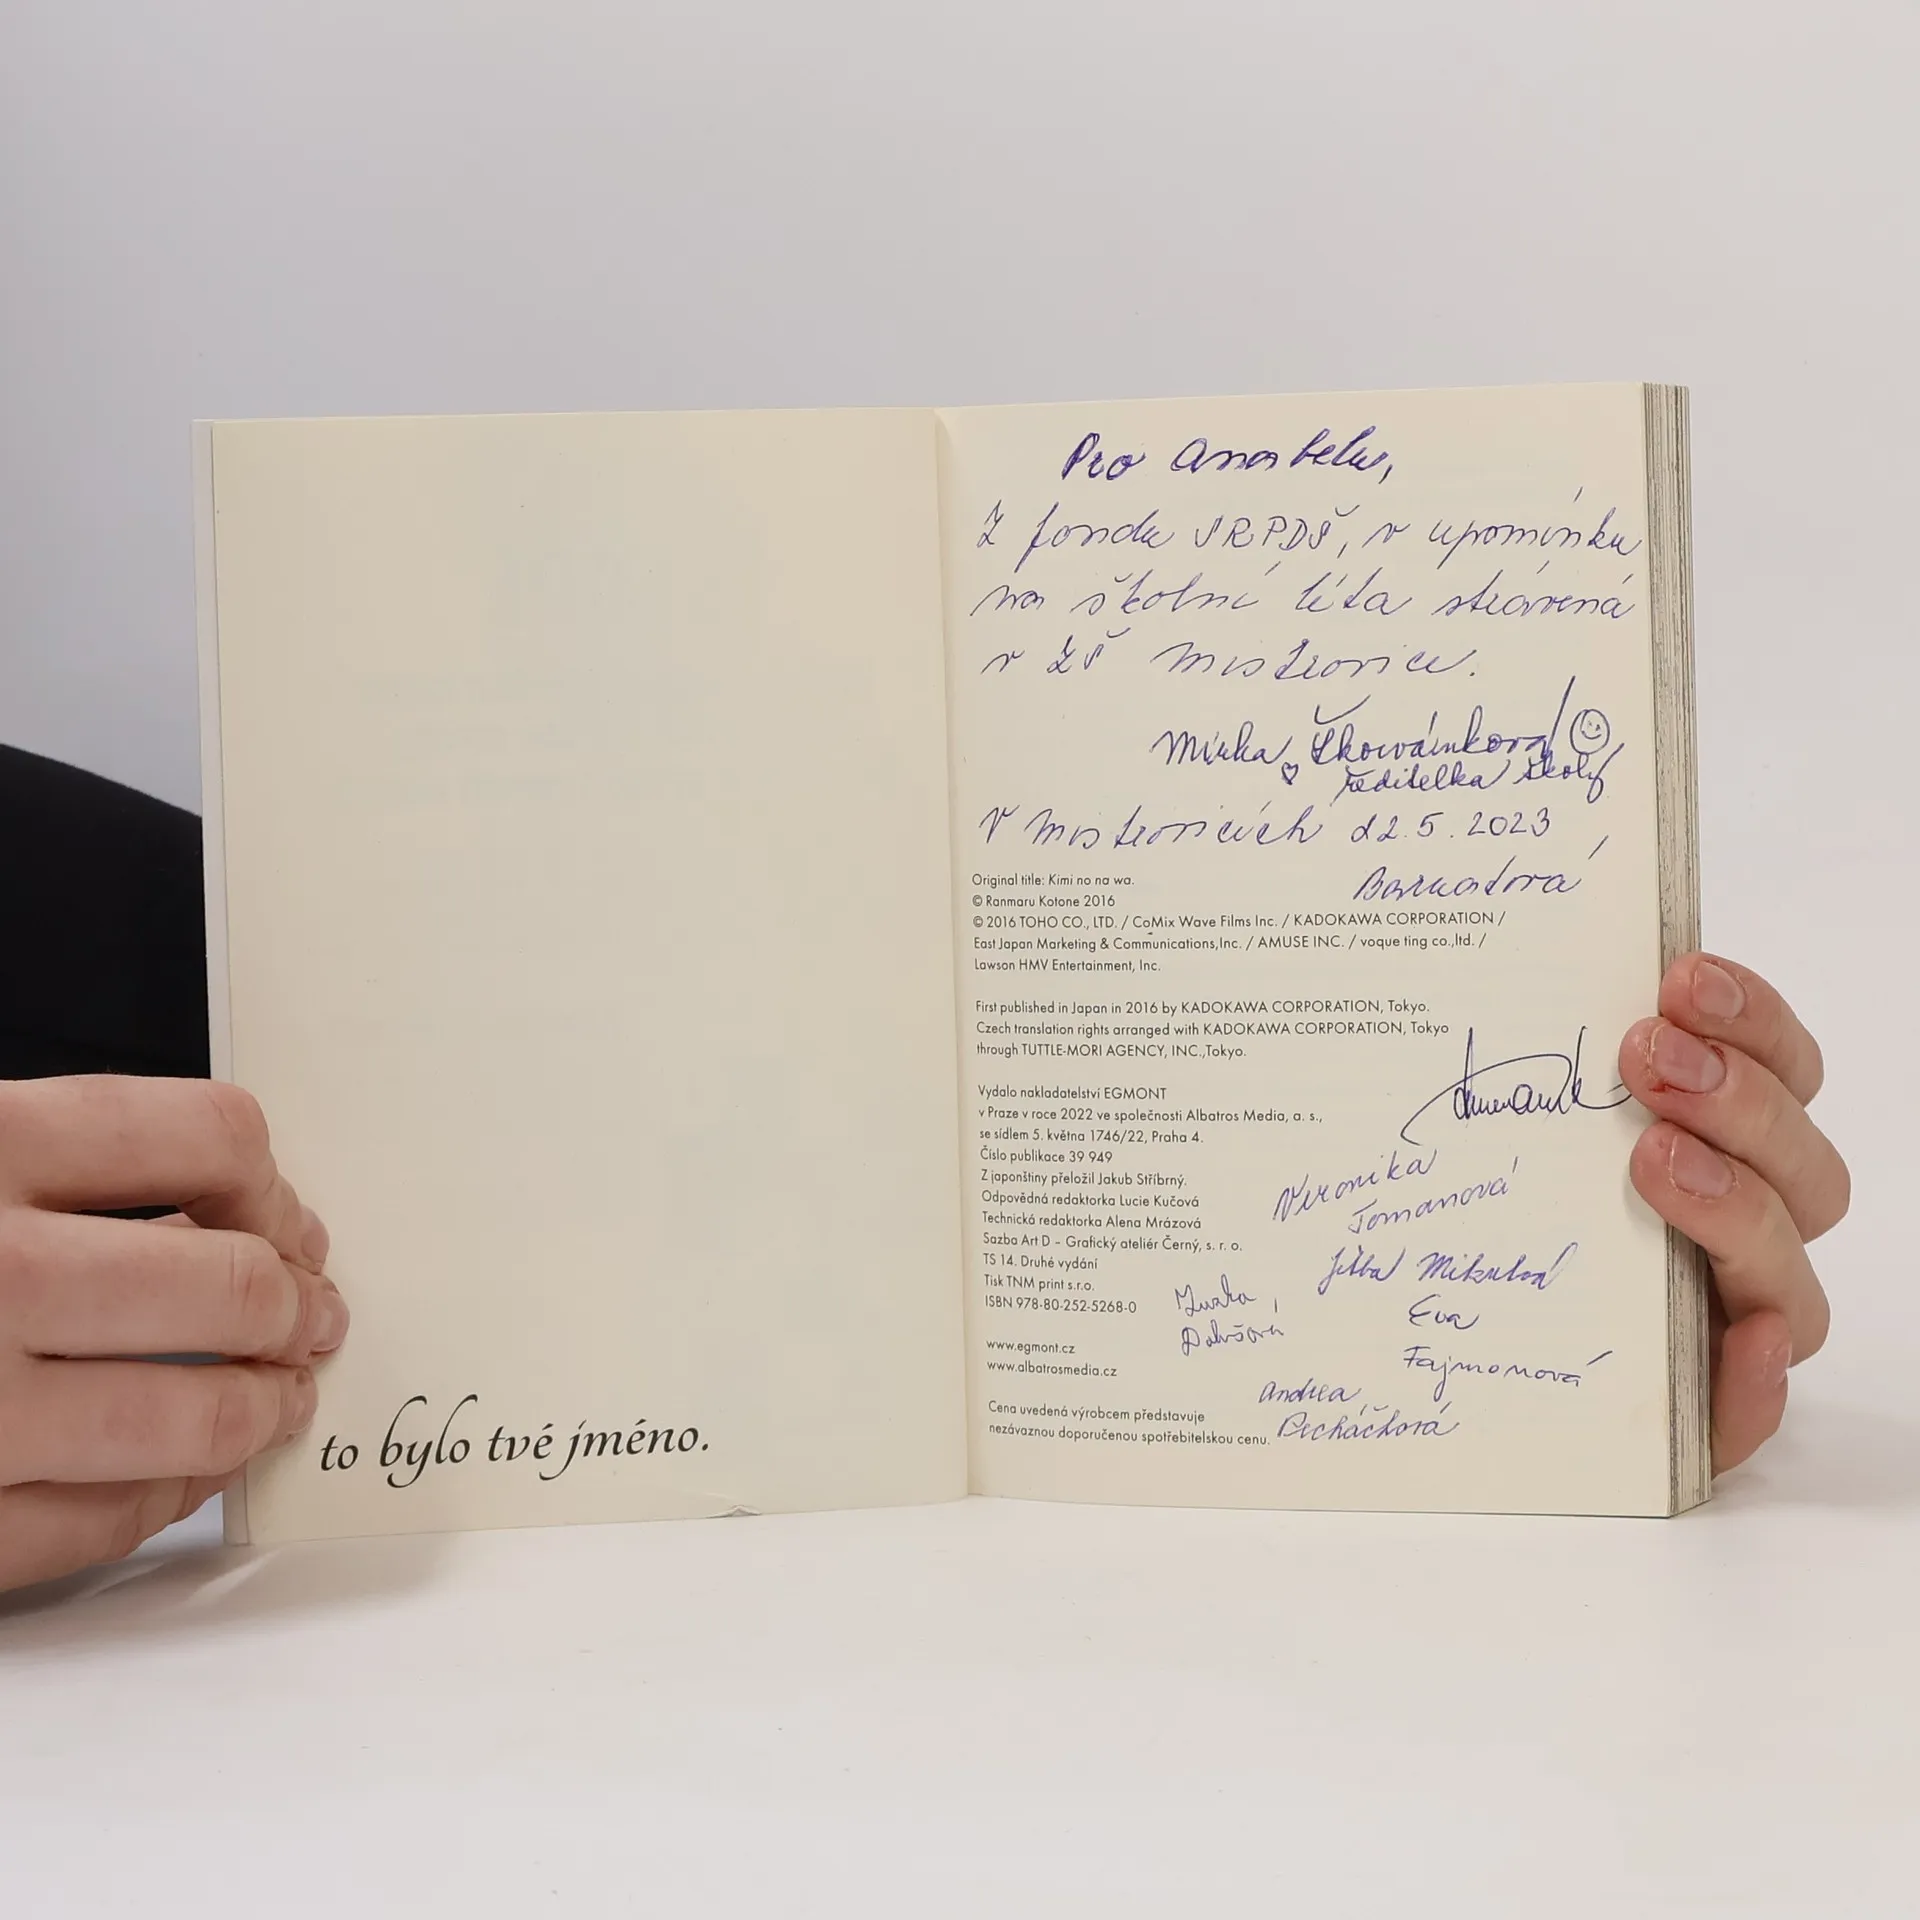 to bylo tvé jméno.
Pro Anabelu,
Z fondu SRPDŠ, v upomínku
na školní léta strávená
v ZŠ Mistrovice.
Mirka
ředitelka školy
V Mistrovicích 22.5.2023
Original title: Kimi no na wa.
© Ranmaru Kotone 2016
© 2016 TOHO CO., LTD. / CoMix Wave Films Inc. / KADOKAWA CORPORATION /
East Japan Marketing & Communications,Inc. / AMUSE INC. / voque ting co.,ltd. /
Lawson HMV Entertainment, Inc.
First published in Japan in 2016 by KADOKAWA CORPORATION, Tokyo.
Czech translation rights arranged with KADOKAWA CORPORATION, Tokyo
through TUTTLE-MORI AGENCY, INC.,Tokyo.
Vydalo nakladatelství EGMONT
v Praze v roce 2022 ve společnosti Albatros Media, a. s.,
se sídlem 5. května 1746/22, Praha 4.
Číslo publikace 39 949
Z japonštiny přeložil Jakub Stříbrný.
Odpovědná redaktorka Lucie Kučová
Technická redaktorka Alena Mrázová
Sazba Art D – Grafický ateliér Černý, s. r. o.
TS 14. Druhé vydání
Tisk TNM print s.r.o.
ISBN 978-80-252-5268-0
www.egmont.cz
www.albatrosmedia.cz
Cena uvedená výrobcem představuje
nezávaznou doporučenou spotřebitelskou cenu.
Veronika
Tomanová
Jitka Mikulová
Eva
Fajmonová
Andrea
Pecháčková